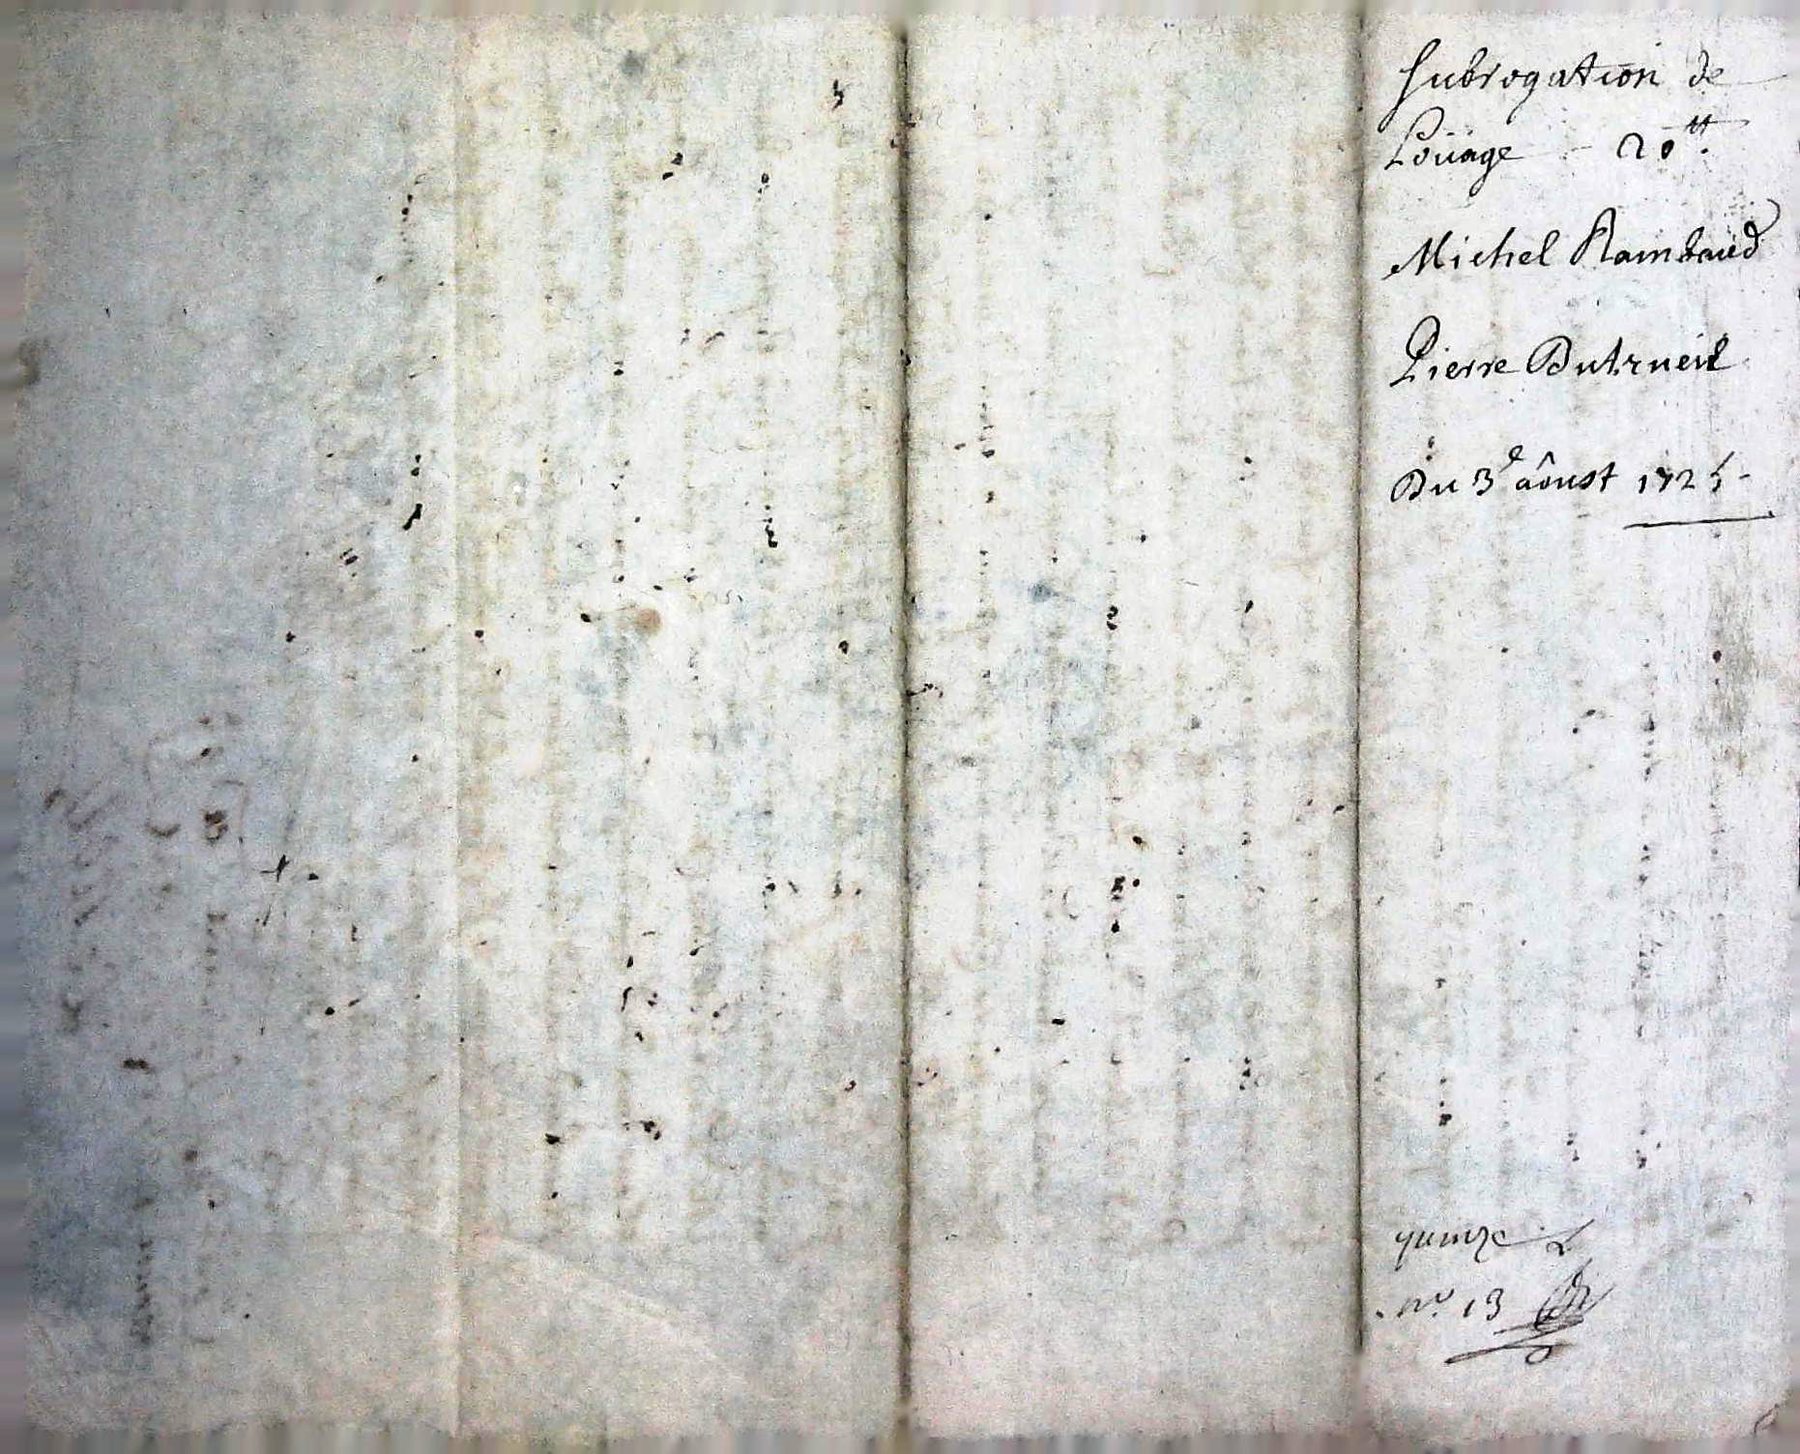 Subrogation de
Loüage - 20 tt.
Michel Rambaud
Pierre Dutrueil
Du 3e. aôust 1725 -
quinze
no. 13